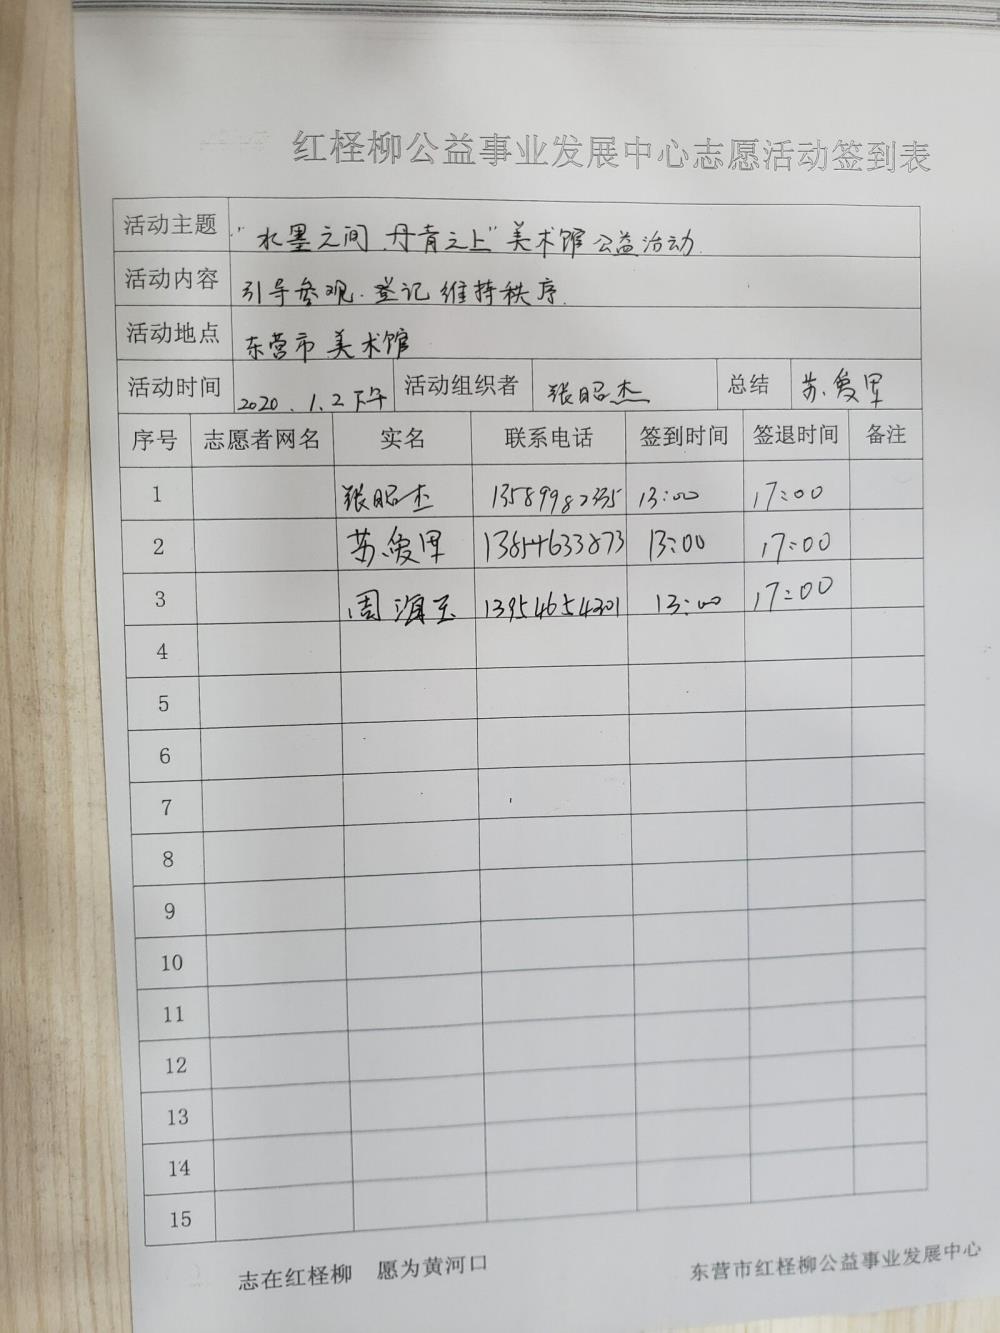 红柽柳公益事业发展中心志愿活动签到表
活动主题 "水墨之间 丹青之上"美术馆公益活动
活动内容 引导参观.登记维持秩序.
活动地点 东营市美术馆
活动时间 2020.1.2下午 活动组织者 张昭杰 总结 苏爱军
序号 志愿者网名 实名 联系电话 签到时间 签退时间 备注
1 张昭杰 13:00 17:00
2 13854633873 13:00 17:00
3 周海玉 13954654201 13:00 17:00
4
5
6
7
8
9
10
11
12
13
14
15
志在红柽柳 愿为黄河口 东营市红柽柳公益事业发展中心